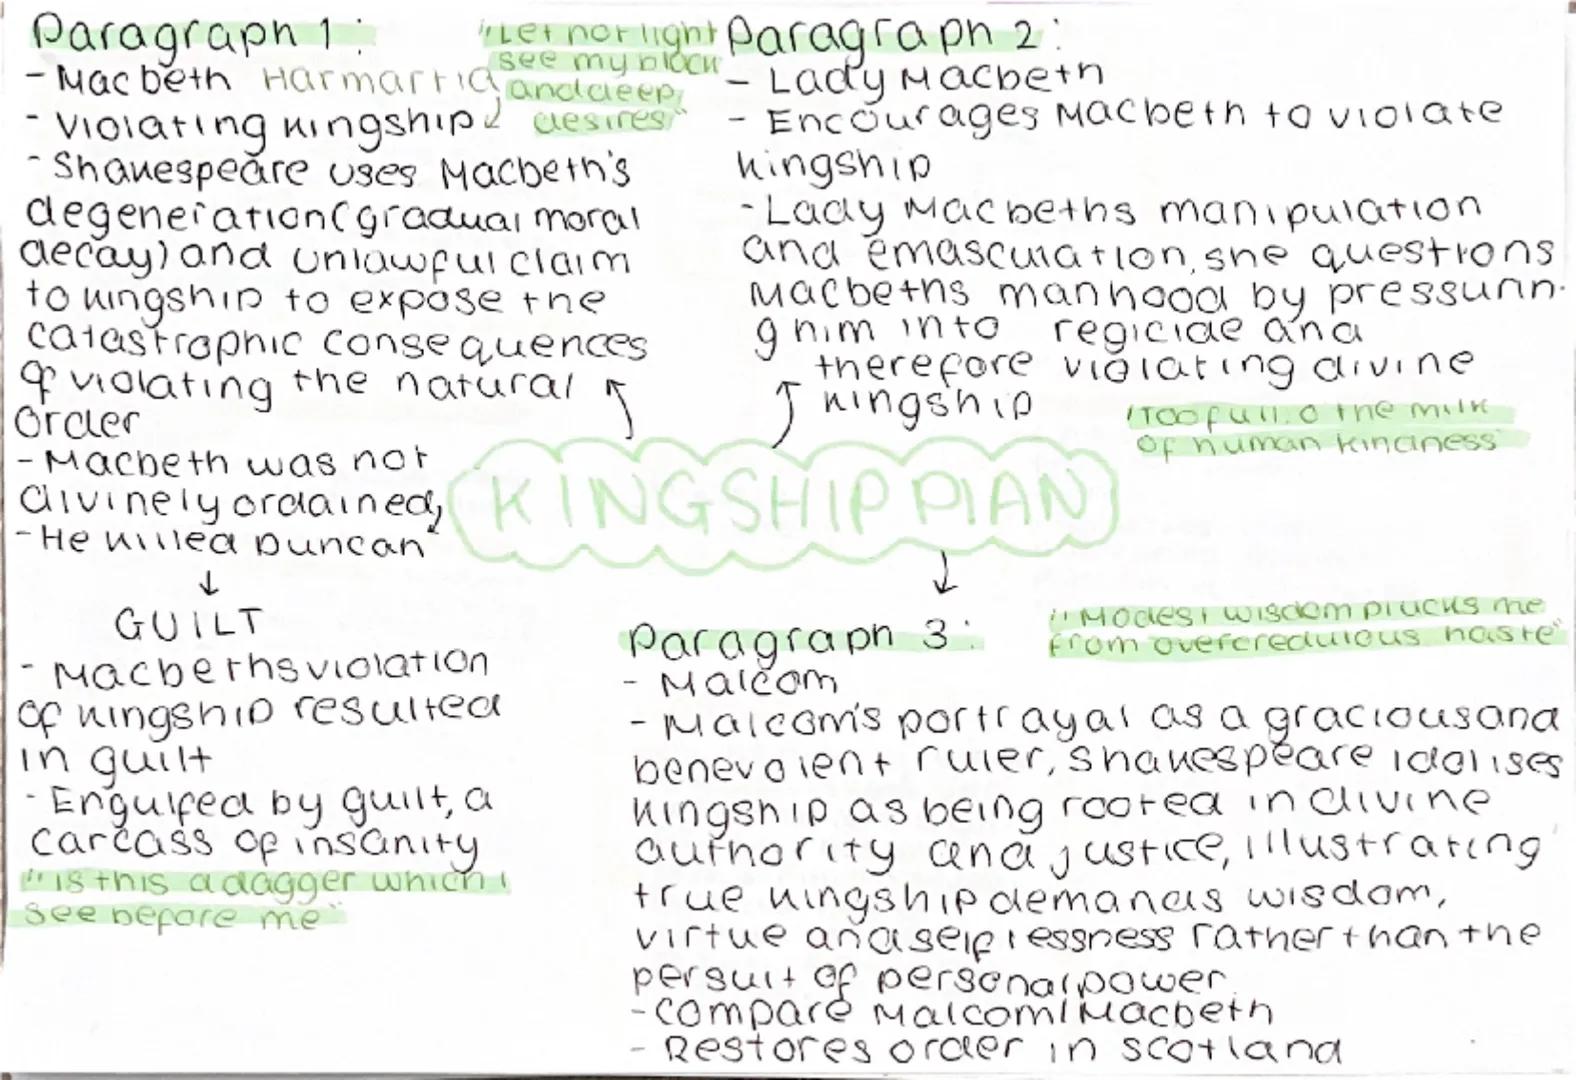 Paragraph 1:
- Macbeth Harmartia
- Violating kingship
"Let not light
see my black
and deep
desires"
- Shakespeare uses Macbeth's
degeneration (gradual moral
decay) and unlawful claim
to kingship to expose the
catastrophic consequences
of violating the natural
order
- Macbeth was not
divinely ordained,
- He killed Duncan
GUILT
- Macbeths violation
of kingship resulted
in guilt
- Engulfed by guilt, a
carcass of insanity
"is this a dagger which i
see before me"
Paragraph 2:
- Lady Macbeth
- Encourages Macbeth to violate
kingship
- Lady Macbeths manipulation
and emasculation, she questions
Macbeths manhood by pressurin-
g him into regicide and
therefore violating divine
kingship
"Too full o the milk
of human kindness"
KINGSHIP PLAN
Paragraph 3:
"Modest wisdom plucks me
from overcredulous haste"
- Malcom
- Malcom's portrayal as a gracious and
benevolent ruler, Shakespeare idolises
kingship as being rooted in divine
authority and justice, illustrating
true kingship demands wisdom,
virtue and selflessness rather than the
persuit of personal power.
- Compare Malcom/Macbeth
- Restores order in scotland